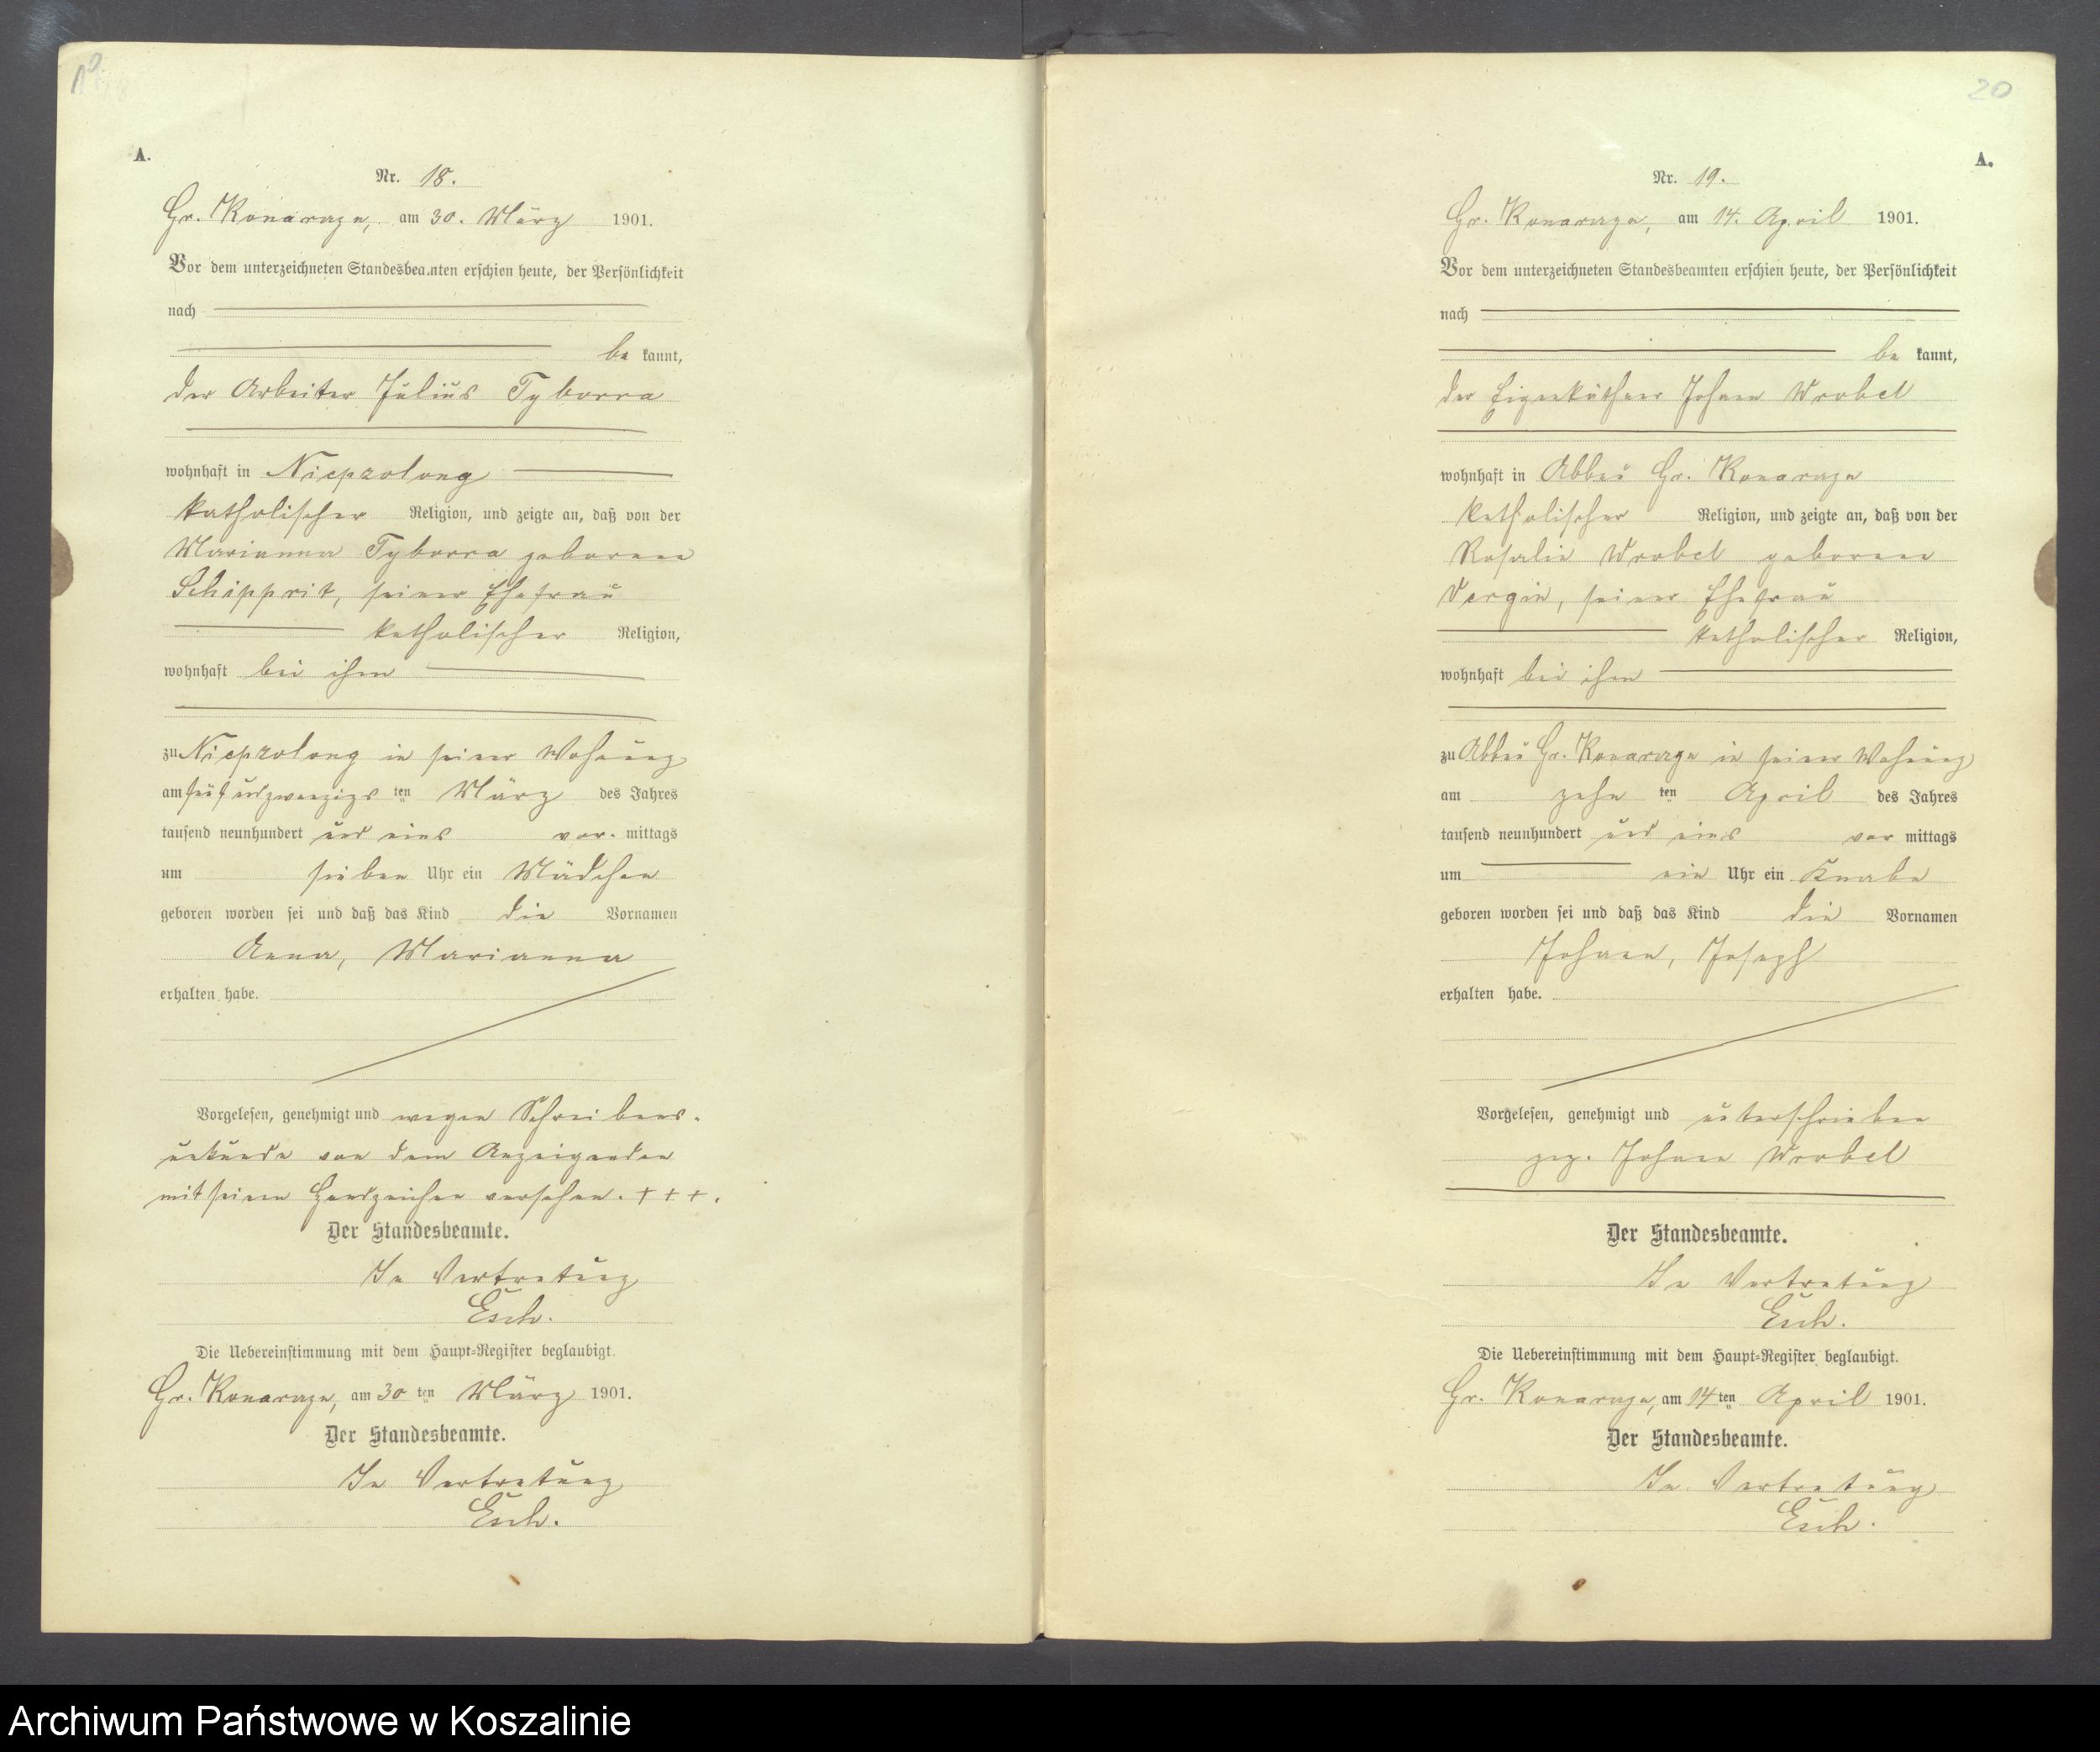 A.
Nr. 18.
Gr. Konarzyn, am 30. März 1901.
Vor dem unterzeichneten Standesbeamten erschien heute, der Persönlichkeit
nach
be kannt,
der Arbeiter Julius Tyborra
wohnhaft in Nieprzolong
katholischer Religion, und zeigte an, daß von der
Marianna Tyborra geborene
Schipprit, seiner Ehefrau
katholischer Religion,
wohnhaft bei ihm
zu Nieprzolong in seiner Wohnung
am fünfundzwanzigs ten März des Jahres
tausend neunhundert und eins vor- mittags
um sieben Uhr ein Mädchen
geboren worden sei und daß das Kind die Vornamen
Anna, Marianna
erhalten habe.
Vorgelesen, genehmigt und wegen Schreibens-
unkunde von dem Anzeigenden
mit seinem Handzeichen versehen. + + +.
Der Standesbeamte.
In Vertretung
Esch.
Die Uebereinstimmung mit dem Haupt-Register beglaubigt.
Gr. Konarzyn, am 30 ten März 1901.
Der Standesbeamte.
In Vertretung
Esch.
20
A.
Nr. 19.
Gr. Konarzyn, am 14. April 1901.
Vor dem unterzeichneten Standesbeamten erschien heute, der Persönlichkeit
nach
be kannt,
der Eigenkäthner Johann Wrobel
wohnhaft in Abbau Gr. Konarzyn
katholischer Religion, und zeigte an, daß von der
Rosalie Wrobel geborene
Vergin, seiner Ehefrau
katholischer Religion,
wohnhaft bei ihm
zu Abbau Gr. Konarzyn in seiner Wohnung
am zehn ten April des Jahres
tausend neunhundert und eins vor mittags
um ein Uhr ein Knabe
geboren worden sei und daß das Kind die Vornamen
Johann, Joseph
erhalten habe.
Vorgelesen, genehmigt und unterschrieben
gez. Johann Wrobel
Der Standesbeamte.
In Vertretung
Esch.
Die Uebereinstimmung mit dem Haupt-Register beglaubigt.
Gr. Konarzyn, am 14 ten April 1901.
Der Standesbeamte.
In Vertretung
Esch.
Archiwum Państwowe w Koszalinie